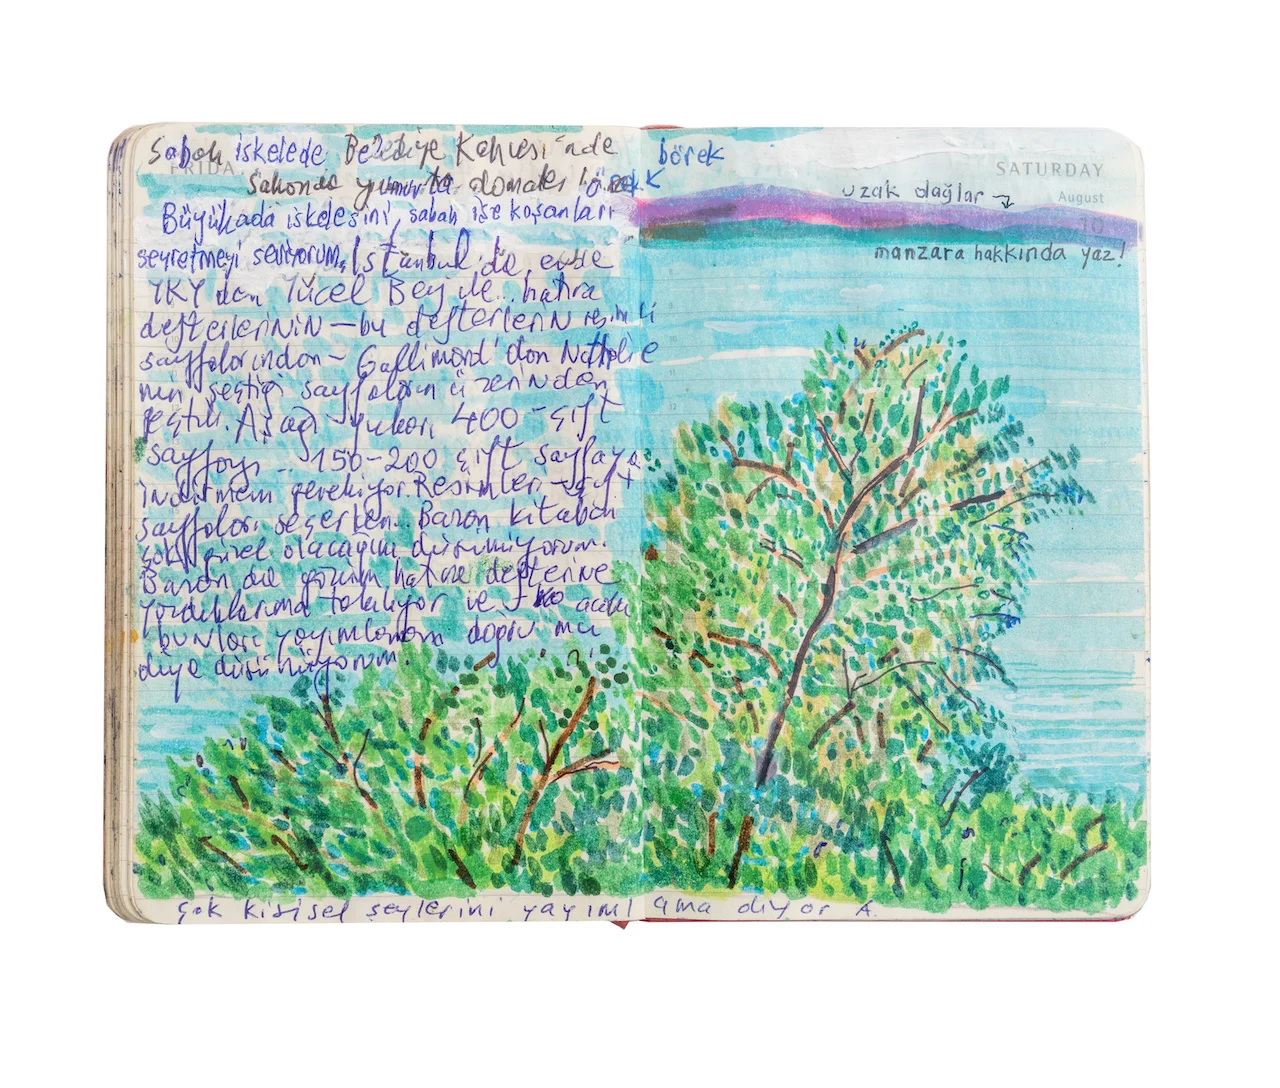 Sabah iskelede Belediye Kahvesi'nde börek
FRIDAY
sahanda yumurta domates börek
Büyükada iskelesini, sabah işe koşanları
seyretmeyi seviyorum. İstanbul'da, evde
YKY'den Yücel Bey ile.. hatıra
defterlerinin – bu defterlerin resimli
sayfalarından – Gallimard'dan Nathalie
nin seçtiği sayfaların üzerinden
geçtik. Aşağı yukarı 400 – çift
sayfayı .. 150-200 çift sayfaya
indirmem gerekiyor. Resimleri – çift
sayfaları seçerken.. Bazan kitabın
çok güzel olacağını düşünüyorum.
Bazan da gözüm hatıra defterine
yazdıklarıma takılıyor ve acaba
bunları yayımlamam doğru mu
diye düşünüyorum.
SATURDAY
uzak dağlar
August
10
manzara hakkında yaz!
çok kişisel şeylerini yayımlama diyor A.